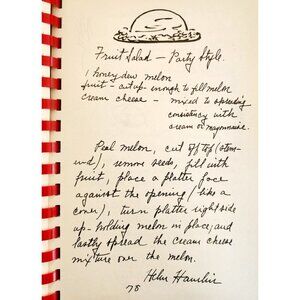 Fruit Salad — Party Style
1 honey dew melon
fruit - cut up enough to fill melon
cream cheese - mixed to spreading
consistency with
cream or mayonnaise.
Peal melon, cut off top (stem-
end), remove seeds, fill with
fruit, place a platter face
against the opening (like a
cover), turn platter right side
up - holding melon in place, and
lastly spread the cream cheese
mixture over the melon.
Helen Hamlin
78